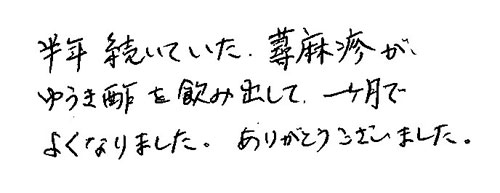 半年続いていた、蕁麻疹が、
ゆうき酢を飲み出して、一ヶ月で
よくなりました。ありがとうございました。